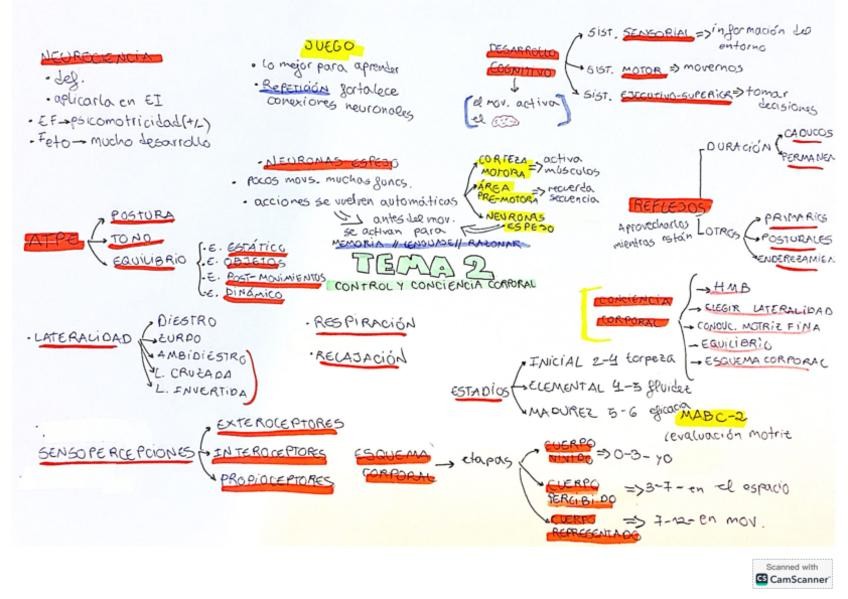 NEUROCIENCIA
• def.
• aplicarla en EI
• EF→psicomotricidad(+L)
• Feto → mucho desarrollo
JUEGO
• lo mejor para aprender
• REPETICIÓN fortalece
conexiones neuronales
DESARROLLO
COGNITIVO
[el mov. activa
el ]
SIST. SENSORIAL ⇒ información del
entorno
SIST. MOTOR ⇒ movernos
SIST. EJECUTIVO-SUPERIOR ⇒ tomar
decisiones
• NEURONAS ESPEJO
• pocos movs. muchas funcs.
• acciones se vuelven automáticas
CORTEZA
MOTORA ⇒ activa
músculos
ÁREA
PRE-MOTORA ⇒ recuerda
secuencia
NEURONAS
ESPEJO
antes del mov.
se activan para
MEMORIA // LENGUAJE // RAZONAR
REFLEJOS
Aprovecharlos
mientras están
DURACIÓN
CADUCOS
PERMANEN
OTROS
PRIMARIOS
POSTURALES
ENDEREZAMIEN
ATPE
POSTURA
TONO
EQUILIBRIO
E. ESTÁTICO
E. OBJETOS
E. POST-MOVIMIENTOS
E. DINÁMICO
TEMA 2
CONTROL Y CONCIENCIA CORPORAL
CONCIENCIA
CORPORAL
→ HMB
→ ELEGIR LATERALIDAD
→ CONDUC. MOTRIZ FINA
→ EQUILIBRIO
→ ESQUEMA CORPORAL
• LATERALIDAD
DIESTRO
ZURDO
AMBIDIESTRO
L. CRUZADA
L. INVERTIDA
• RESPIRACIÓN
• RELAJACIÓN
ESTADÍOS
INICIAL 2-4 torpeza
ELEMENTAL 4-5 fluidez
MADUREZ 5-6 eficacia
MABC-2
(evaluación motriz
SENSOPERCEPCIONES
EXTEROCEPTORES
INTEROCEPTORES
PROPIOCEPTORES
ESQUEMA
CORPORAL → etapas
CUERPO
VIVIDO ⇒ 0-3-yo
CUERPO
PERCIBIDO ⇒ 3-7-en el espacio
CUERPO
REPRESENTADO ⇒ 7-12-en mov.
Scanned with
CS CamScanner